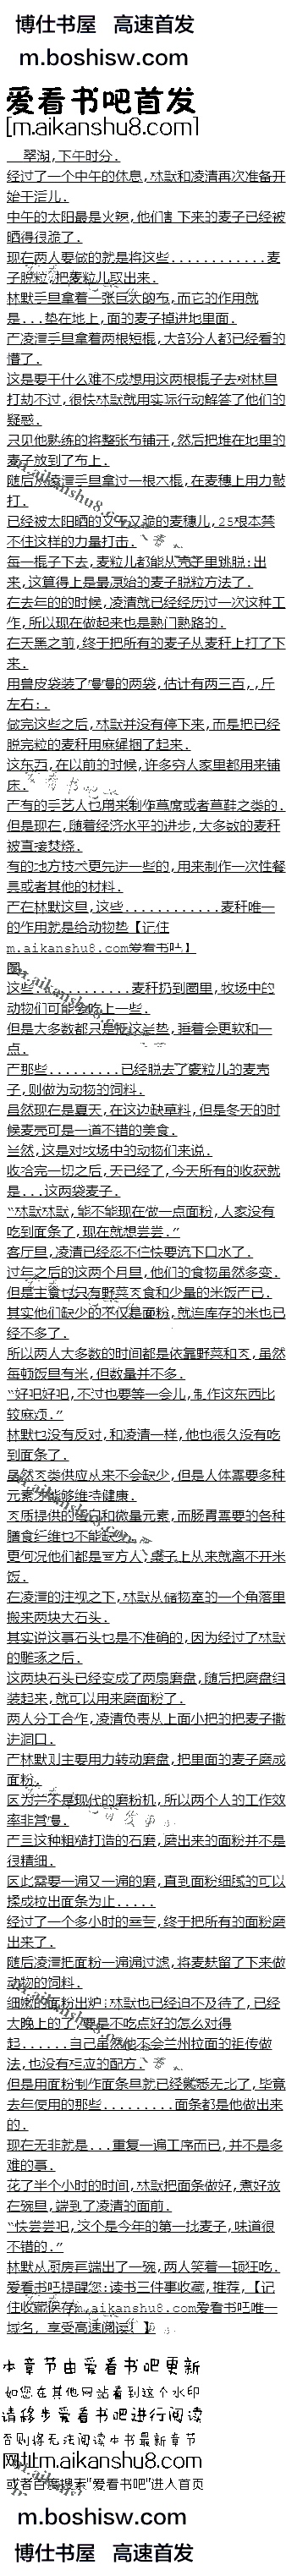 博仕书屋 高速首发
m.boshisw.com
爱看书吧首发
[m.aikanshu8.com]
翠湖,下午时分.
经过了一个中午的休息,林默和凌清再次准备开
始干活儿.
中午的太阳最是火辣,他们割下来的麦子已经被
晒得很脆了.
现在两人要做的就是将这些............麦
子脱粒,把麦粒儿取出来.
林默手里拿着一张巨大的布,而它的作用就
是...垫在地上,面的麦子掉进地里面.
而凌清手里拿着两根短棍,大部分人都已经看的
懵了.
这是要干什么难不成想用这两根棍子去树林里
打劫不过,很快林默就用实际行动解答了他们的
疑惑.
只见他熟练的将整张布铺开,然后把堆在地里的
麦子放到了布上.
随后从凌清手里拿过一根木棍,在麦穗上用力敲
打.
已经被太阳晒的又干又脆的麦穗儿,25根本禁
不住这样的力量打击.
每一棍子下去,麦粒儿都能从壳子里跳脱:出
来,这算得上是最原始的麦子脱粒方法了.
在去年的的时候,凌清就已经经历过一次这种工
作,所以现在做起来也是熟门熟路的.
在天黑之前,终于把所有的麦子从麦秆上打了下
来.
用兽皮袋装了慢慢的两袋,估计有两三百,,斤
左右:.
做完这些之后,林默并没有停下来,而是把已经
脱完粒的麦秆用麻绳捆了起来.
这东西,在以前的时候,许多穷人家里都用来铺
床.
而有的手艺人也用来制作草席或者草鞋之类的.
但是现在,随着经济水平的进步,大多数的麦秆
被直接焚烧.
有的地方技术更先进一些的,用来制作一次性餐
具或者其他的材料.
而在林默这里,这些............麦秆唯一
的作用就是给动物垫【记住
m.aikanshu8.com爱看书吧】
圈.
这些............麦秆扔到圈里,牧场中的
动物们可能会吃上一些.
但是大多数都只是把这些垫,睡着会更软和一
点.
而那些.........已经脱去了麦粒儿的麦壳
子,则做为动物的饲料.
虽然现在是夏天,在这边缺草料,但是冬天的时
候麦壳可是一道不错的美食.
当然,这是对牧场中的动物们来说.
收拾完一切之后,天已经了,今天所有的收获就
是...这两袋麦子.
“林默林默,能不能现在做一点面粉,人家没有
吃到面条了,现在就想尝尝.”
客厅里,凌清已经忍不住快要流下口水了.
过年之后的这两个月里,他们的食物虽然多变.
但是主食也只有野菜肉食和少量的米饭而已.
其实他们缺少的不仅是面粉,就连库存的米也已
经不多了.
所以两人大多数的时间都是依靠野菜和肉,虽然
每顿饭里有米,但数量并不多.
“好吧好吧,不过也要等一会儿,制作这东西比
较麻烦.”
林默也没有反对,和凌清一样,他也很久没有吃
到面条了.
虽然肉类供应从来不会缺少,但是人体需要多种
元素才能够维持健康.
肉质提供的蛋白和微量元素,而肠胃需要的各种
膳食纤维也不能缺少.
更何况他们都是南方人,桌子上从来就离不开米
饭.
在凌清的注视之下,林默从储物室的一个角落里
搬来两块大石头.
其实说这事石头也是不准确的,因为经过了林默
的雕琢之后.
这两块石头已经变成了两扇磨盘,随后把磨盘组
装起来,就可以用来磨面粉了.
两人分工合作,凌清负责从上面小把的把麦子撒
进洞口.
而林默则主要用力转动磨盘,把里面的麦子磨成
面粉.
因为并不是现代的磨粉机,所以两个人的工作效
率非常慢.
而三这种粗糙打造的石磨,磨出来的面粉并不是
很精细.
因此需要一遍又一遍的磨,直到面粉细腻的可以
揉成拉出面条为止.....
经过了一个多小时的辛苦,终于把所有的面粉磨
出来了.
随后凌清把面粉一遍遍过滤,将麦麸留了下来做
动物的饲料.
细嫩的面粉出炉:林默也已经迫不及待了,已经
大晚上的了,要是不吃点好的怎么对得
起......自己虽然他不会兰州拉面的祖传做
法,也没有相应的配方.
但是用面粉制作面条早就已经熟悉无比了,毕竟
去年使用的那些.........面条都是他做出来
的.
现在无非就是...重复一遍工序而已,并不是多
难的事.
花了半个小时的时间,林默把面条做好,煮好放
在碗里,端到了凌清的面前.
“快尝尝吧,这个是今年的第一批麦子,味道很
不错的.”
林默从厨房再端出了一碗,两人笑着一顿狂吃.
爱看书吧提醒您:读书三件事收藏,推荐,【记
住收藏保存m.aikanshu8.com爱看书吧唯一
域名, 享受高速阅读! 】
本章节由爱看书吧更新
如您在其他网站看到这个水印
请移步爱看书吧进行阅读
否则得无法阅读本书最新章节
网址m.aikanshu8.com
或者百度搜索"爱看书吧"进入首页
m.boshisw.com
博仕书屋 高速首发